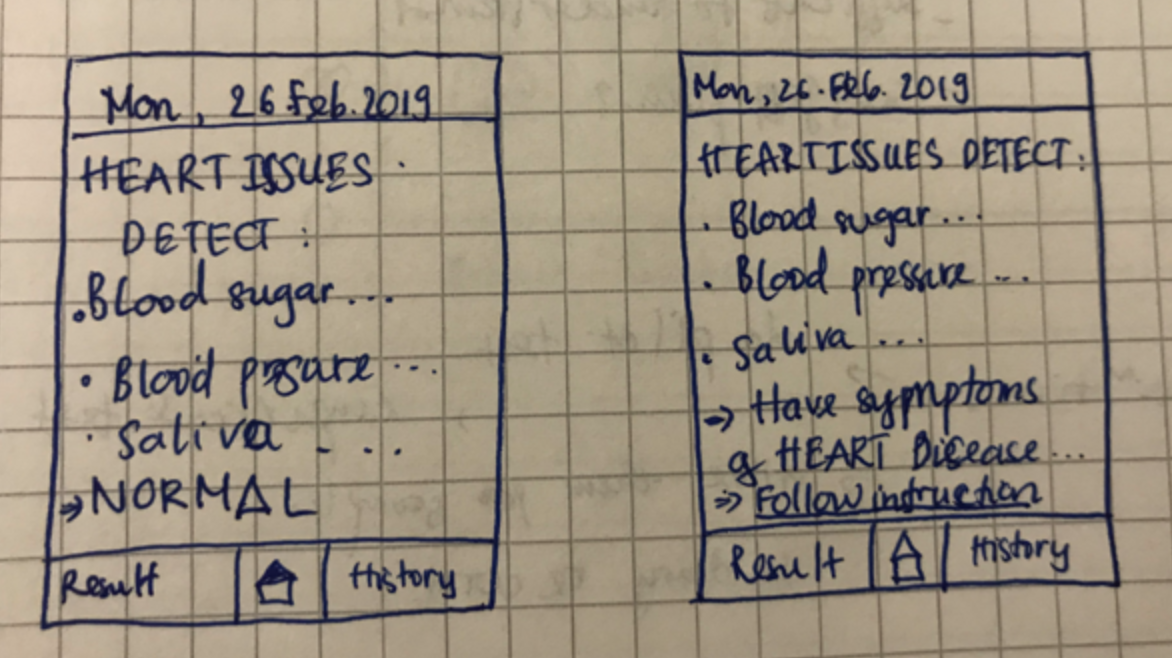 Mon, 26 Feb. 2019
HEART ISSUES
DETECT :
. Blood sugar...
• Blood presare ...
. Saliva - ...
→ NORMAL
Result
History
Mon, 26. Feb. 2019
HEART ISSUES DETECT :
. Blood sugar...
. Blood pressure ...
. Saliva ...
→ Have sypmptoms
HEART Disease ...
⇒ Follow intruction
Result
History